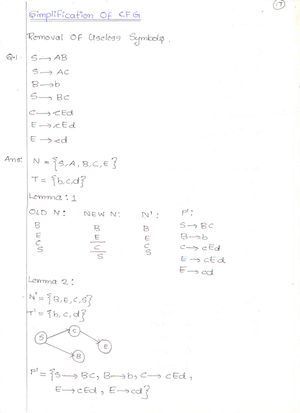 Simplification Of CFG
Removal Of Useless Symbols.
Q:1 S → AB
S → AC
B → b
S → BC
C → cEd
E → cEd
E → cd
Ans: N = {S, A, B, C, E}
T = {b, c, d}
Lemma : 1
OLD N: NEW N: N': P':
B B B S → BC
E E E B → b
C C C C → cEd
S S S E → cEd
E → cd
Lemma 2:
N' = {B, E, C, S}
T' = {b, c, d}
S C E B
P' = {S → BC, B → b, C → cEd,
E → cEd, E → cd}